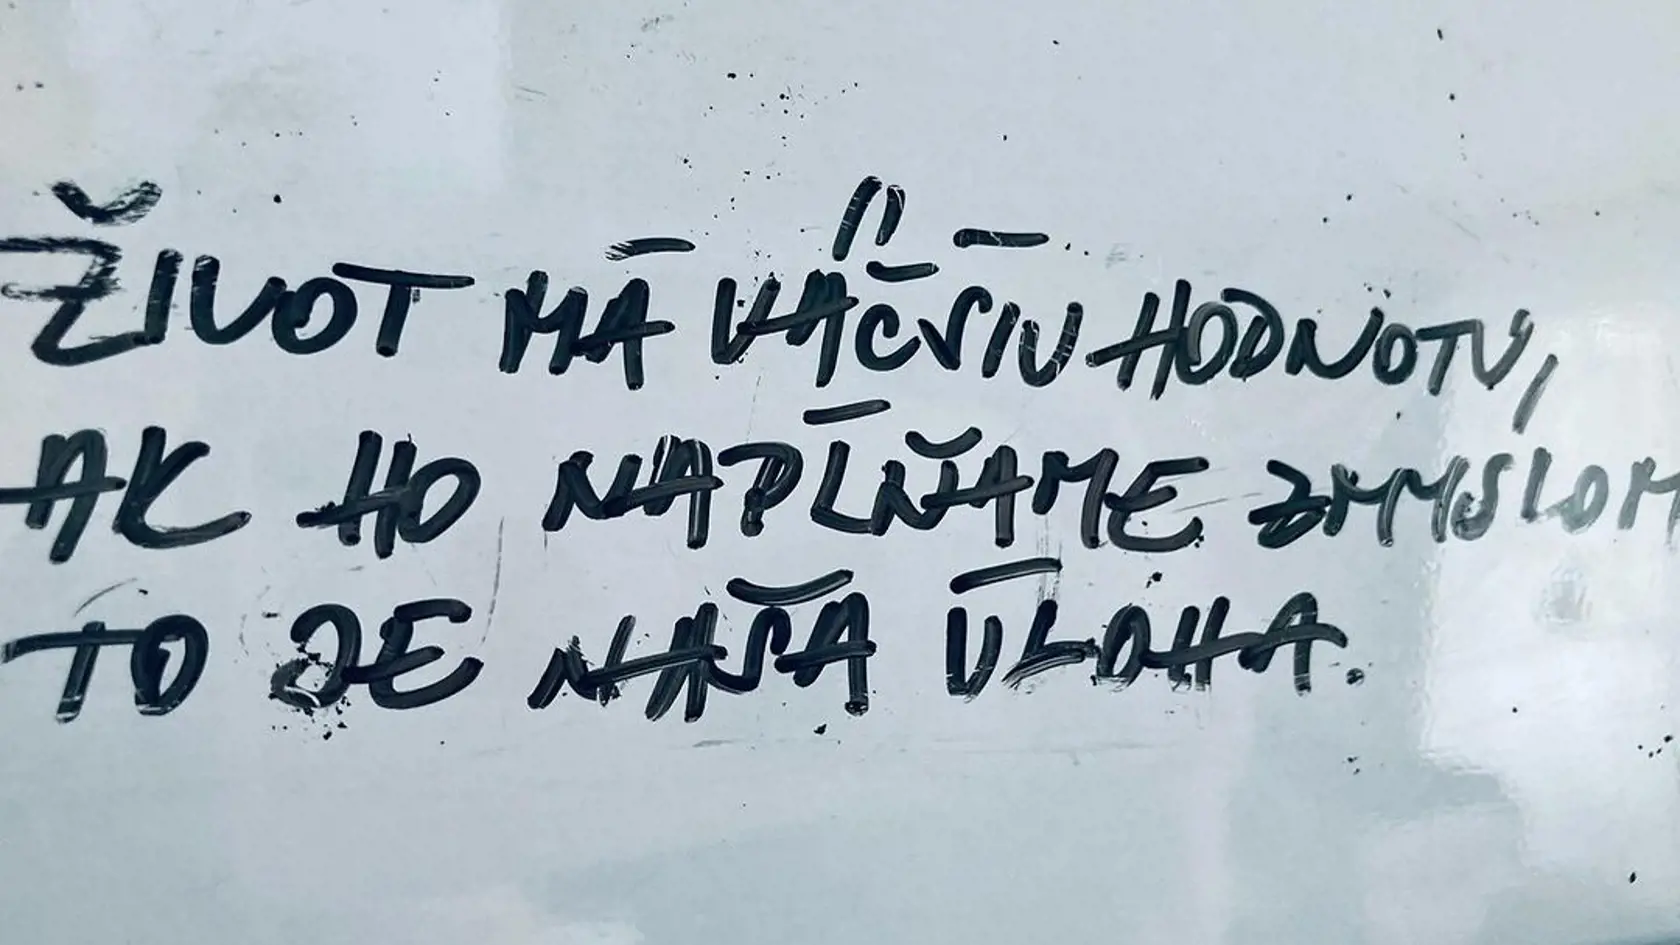 ŽIVOT MÁ VÄČŠIU HODNOTU,
AK HO NAPĹŇAME ZMYSLOM
TO JE NAŠA ÚLOHA.